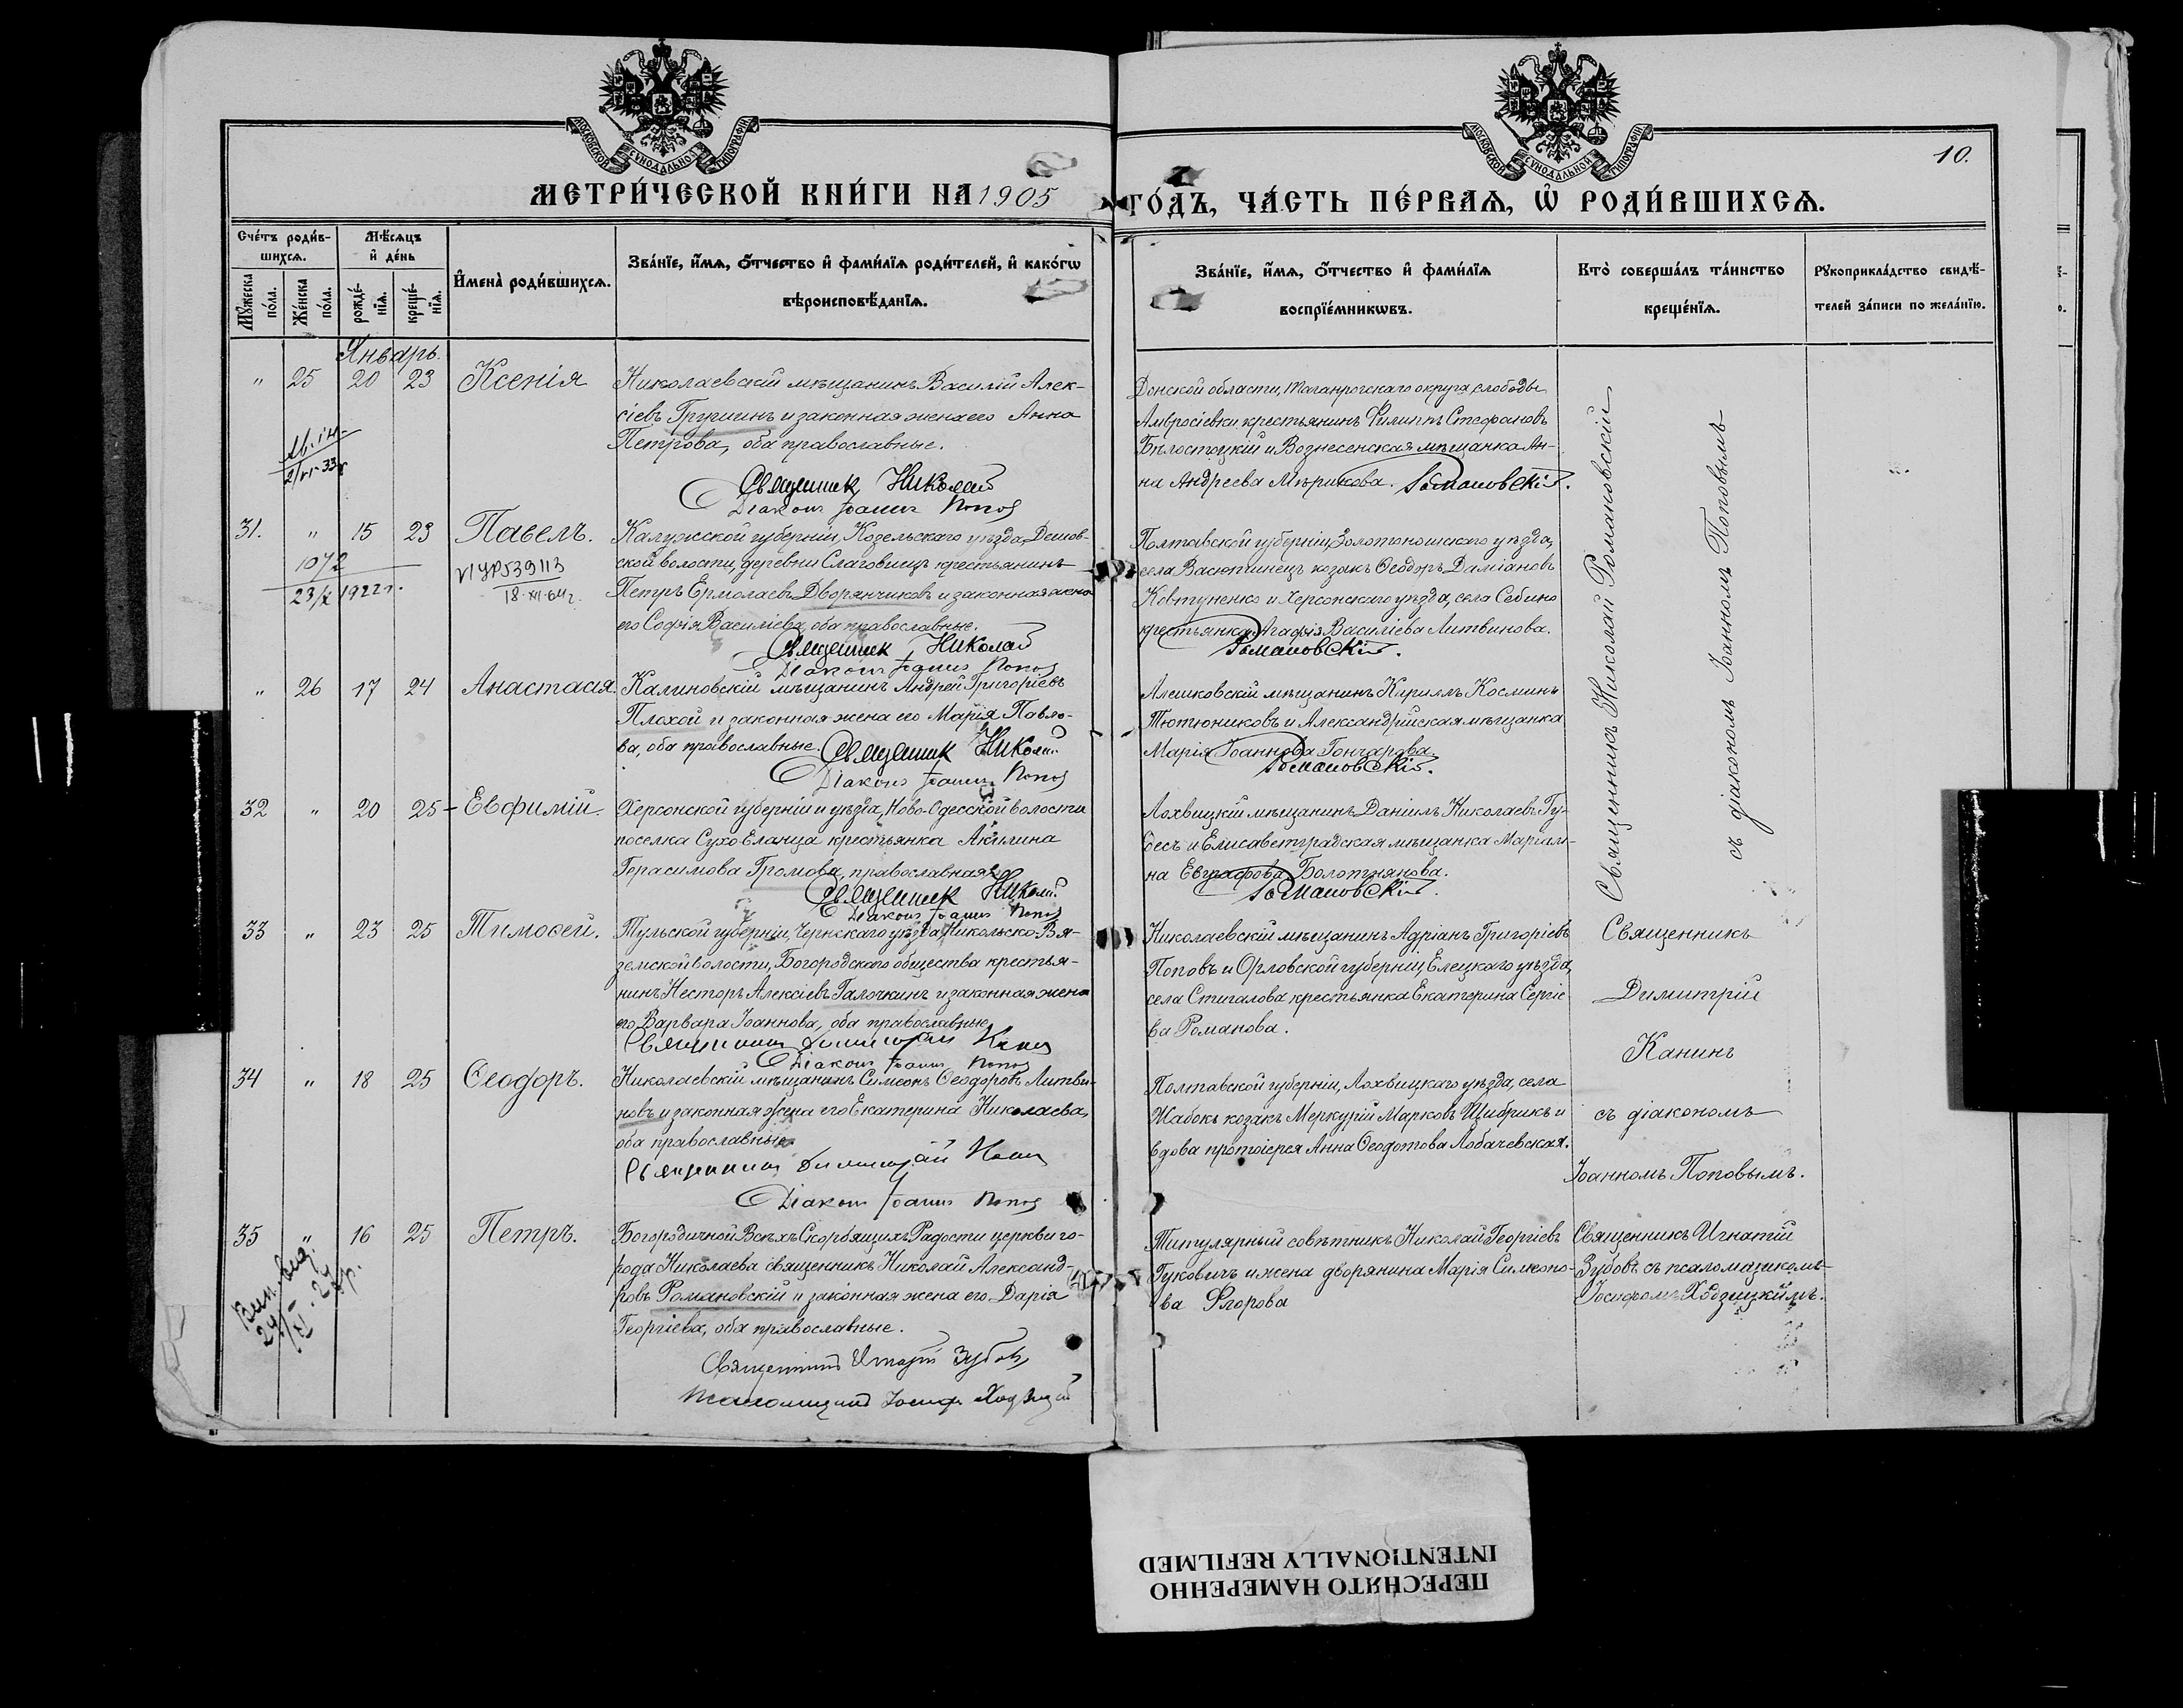 МОСКОВСКОЙ СУНОДАЛЬНОЙ ТИПОГРАФІИ
МОСКОВСКОЙ СУНОДАЛЬНОЙ ТИПОГРАФІИ
10.
МЕТРИ́ЧЕСКОЙ КНИ́ГИ НА 1905
ГО́ДЪ, ЧА́СТЬ ПЕ́РВАѦ, Ѡ҆ РОДИ́ВШИХСѦ.
Сче́тъ роди́в-
шихсѧ.
Мꙋ́жеска по́ла.
Же́нска по́ла.
Мѣ́сѧцъ
и҆ де́нь
рожде́-
нїѧ.
креще́-
нїѧ.
И҆мена̀ роди́вшихсѧ.
Зва́нїе, и҆́мѧ, ѻ҆́тчество и҆ фами́лїѧ роди́телей, и҆ како́гѡ
вѣроисповѣ́данїѧ.
Зва́нїе, и҆́мѧ, ѻ҆́тчество и҆ фами́лїѧ
воспрїе́мникѡвъ.
Кто̀ соверша́лъ та́инство
креще́нїѧ.
Рꙋкоприкла́дство свидѣ́-
телей за́писи по жела́нїю.
Январь.
" 25 20 23 Ксенія
Николаевскій мѣщанинъ Василій Алек-
сіевъ Грушинъ и законная жена его Анна
Петрова, оба православные.
Священник Николай
Діаконъ Іоаннъ Попов
Донской области, Таганрогскаго округа, слободы
Амвросіевки крестьянинъ Филиппъ Стефановъ
Бѣлостоцкій и Вознесенская мѣщанка Ан-
на Андреева Мѣрикова. Романовскій.
2/VI-33г
31. " 15 23 Павелъ.
1072
23/X 1922 г.
VIУР539113
18-XII-64г.
Калужской губерніи, Козельскаго уѣзда, Дешов-
ской волости, деревни Слаговищъ крестьянинъ
Петръ Ермолаевъ Дворянчиковъ и законная жена
его Софія Василіева, оба православные.
Священник Николай
Діаконъ Іоаннъ Попов
Полтавской губерніи, Золотоношскаго уѣзда,
села Васютинецъ козакъ Ѳеодоръ Даміановъ
Ковтуненко и Херсонскаго уѣзда, села Себино
крестьянка Агафія Василіева Литвинова.
Романовскій.
" 26 17 24 Анастасія.
Калиновскій мѣщанинъ Андрей Григоріевъ
Плохой и законная жена его Марія Павло-
ва, оба православные. Священник Николай
Діаконъ Іоаннъ Попов
Алешковскій мѣщанинъ Кириллъ Косминъ
Тютюниковъ и Александрійская мѣщанка
Марія Іоаннова Гончарова.
Романовскій.
Священникъ Николай Романовскій
съ діакономъ Іоанномъ Поповымъ
32 " 20 25 - Евфимій.
Херсонской губерніи и уѣзда, Ново-Одесской волости
поселка Сухо-Еланца крестьянка Акилина
Герасимова Громова, православная.
Священник Николай
Діаконъ Іоаннъ Попов
Лохвицкій мѣщанинъ Даніилъ Николаевъ Гу-
бесъ и Елисаветградская мѣщанка Маріам-
на Евграфова Болотнякова.
Романовскій.
33 " 23 25 Тимоѳей.
Тульской губерніи, Чернскаго уѣзда, Никольско-Вя-
земской волости, Богородскаго общества крестья-
нинъ Несторъ Алексіевъ Галочкинъ и законная жена
его Варвара Іоаннова, оба православные
Священник Димитрій Канин
Діаконъ Іоаннъ Попов
Николаевскій мѣщанинъ Адріанъ Григоріевъ
Поповъ и Орловской губерніи, Елецкаго уѣзда,
села Стигалова крестьянка Екатерина Сергіе
ва Романова.
Священникъ
Димитрій
Канинъ
съ діакономъ
Іоанномъ Поповымъ.
34 " 18 25 Ѳеодоръ.
Николаевскій мѣщанинъ Симеонъ Ѳеодоровъ Литви-
новъ и законная жена его Екатерина Николаева,
оба православные.
Священник Димитрій Канин
Діаконъ Іоаннъ Попов
Полтавской губерніи, Лохвицкаго уѣзда, села
Жабокъ козакъ Меркурій Марковъ Цибрикъ и
вдова протоіерея Анна Ѳеодотова Лобачевская.
35 " 16 25 Петръ.
Вип. вид.
24/XI-24 р.
Богородичной Всѣхъ Скорбящихъ Радости церкви го-
рода Николаева священникъ Николай Александ-
ровъ Романовскій и законная жена его Дарія
Георгіева, оба православные.
Священникъ Игнатій Зубовъ
Псаломщикъ Іосифъ Ходзицкій
Титулярный совѣтникъ Николай Георгіевъ
Гуковичъ и жена дворянина Марія Симеоно-
ва Флорова
Священникъ Игнатій
Зубовъ съ псаломщикомъ
Іосифомъ Ходзицкимъ.
ПЕРЕСНЯТО НАМЕРЕННО
INTENTIONALLY REFILMED